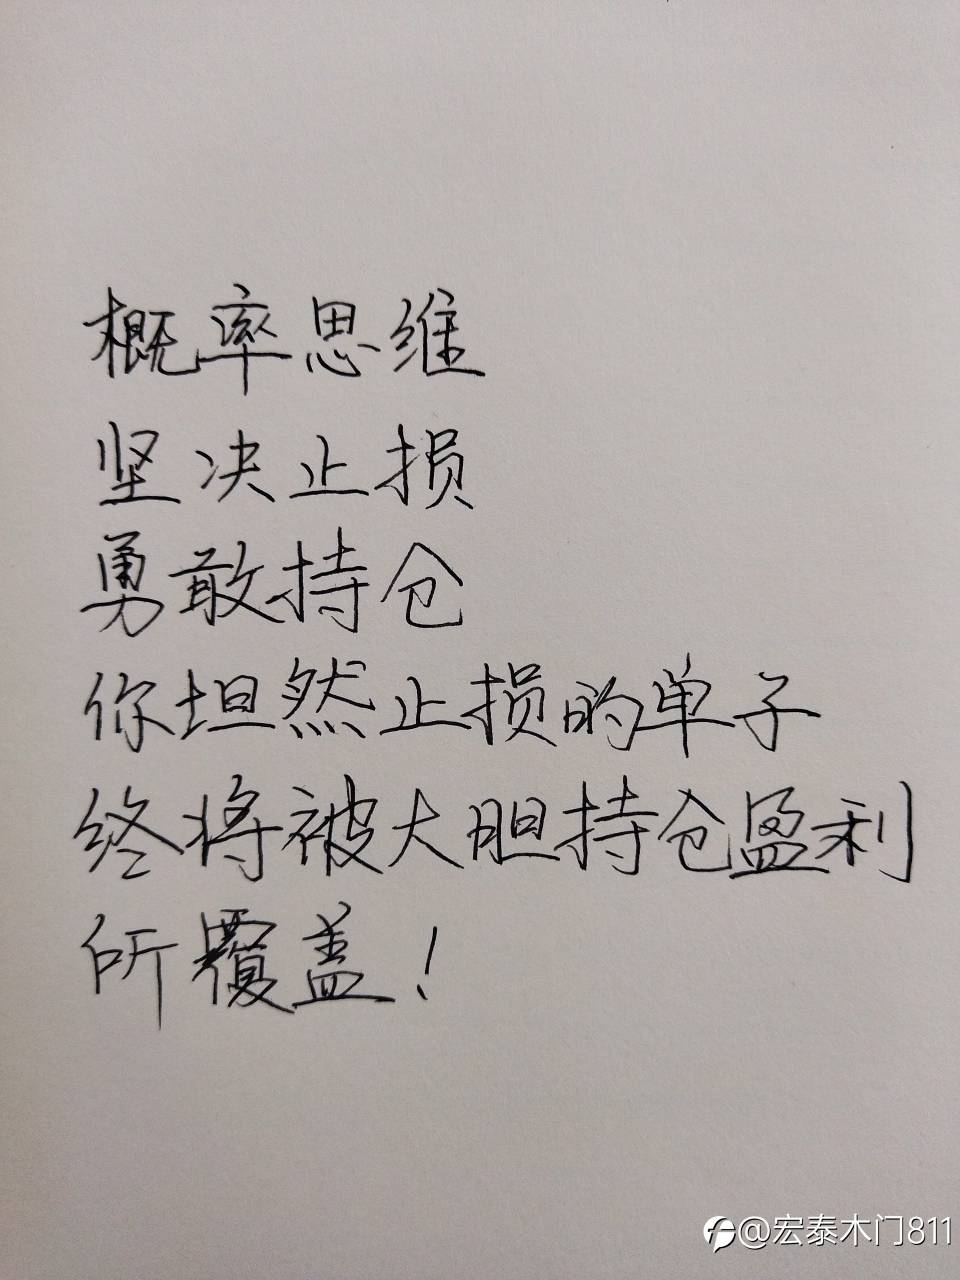 概率思维
坚决止损
勇敢持仓
你坦然止损的单子
终将被大胆持仓盈利
所覆盖！
@宏泰木门811